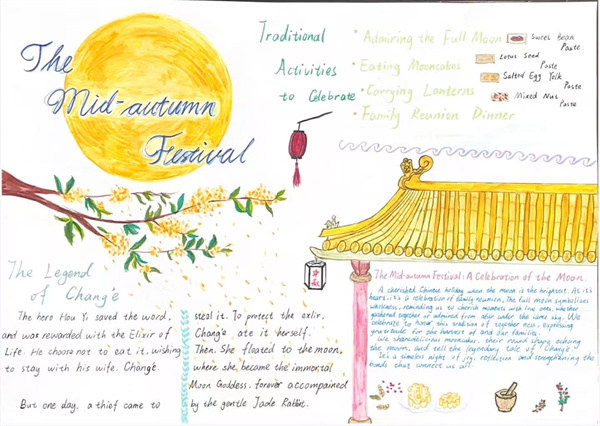 The
Mid-autumn
Festival
Traditional
Activities
to Celebrate
• Admiring the Full Moon
• Eating Mooncakes
• Carrying Lanterns
• Family Reunion Dinner
Sweet Bean
Paste
Lotus Seed
Paste
Salted Egg Yolk
Paste
Mixed Nut
Paste
The Legend
of Chang'e
The hero Hou Yi saved the word,
and was rewarded with the Elixir of
Life. He choose not to eat it, wishing
to stay with his wife. Chang'e.
But one day, a thief came to
steal it. To protect the exlir.
Chang'e ate it herself.
Then. She floated to the moon,
where she became the immortal
Moon Goddess. forever accompained
by the gentle Jade Rabbit.
中秋
The Mid-autumn Festival: A Celebration of the Moon.
A cherished Chinese holiday when the moon is the brightest. At its
heart, it's a celebration of family reunion. The full moon symbolises
wholeness, reminding us to cherish moments with loved ones, whether
gathered together or admired from afar under the same sky. We
celebrate to honor this tradition of together ness, expressing
gratitude for the harvest of and our families.
We share delicious mooncakes, their round shape echoing
the moon, and tell the legendary tale of Chang'e.
It's a timeless night of joy, reflection and strengthening the
bonds that connect us all.